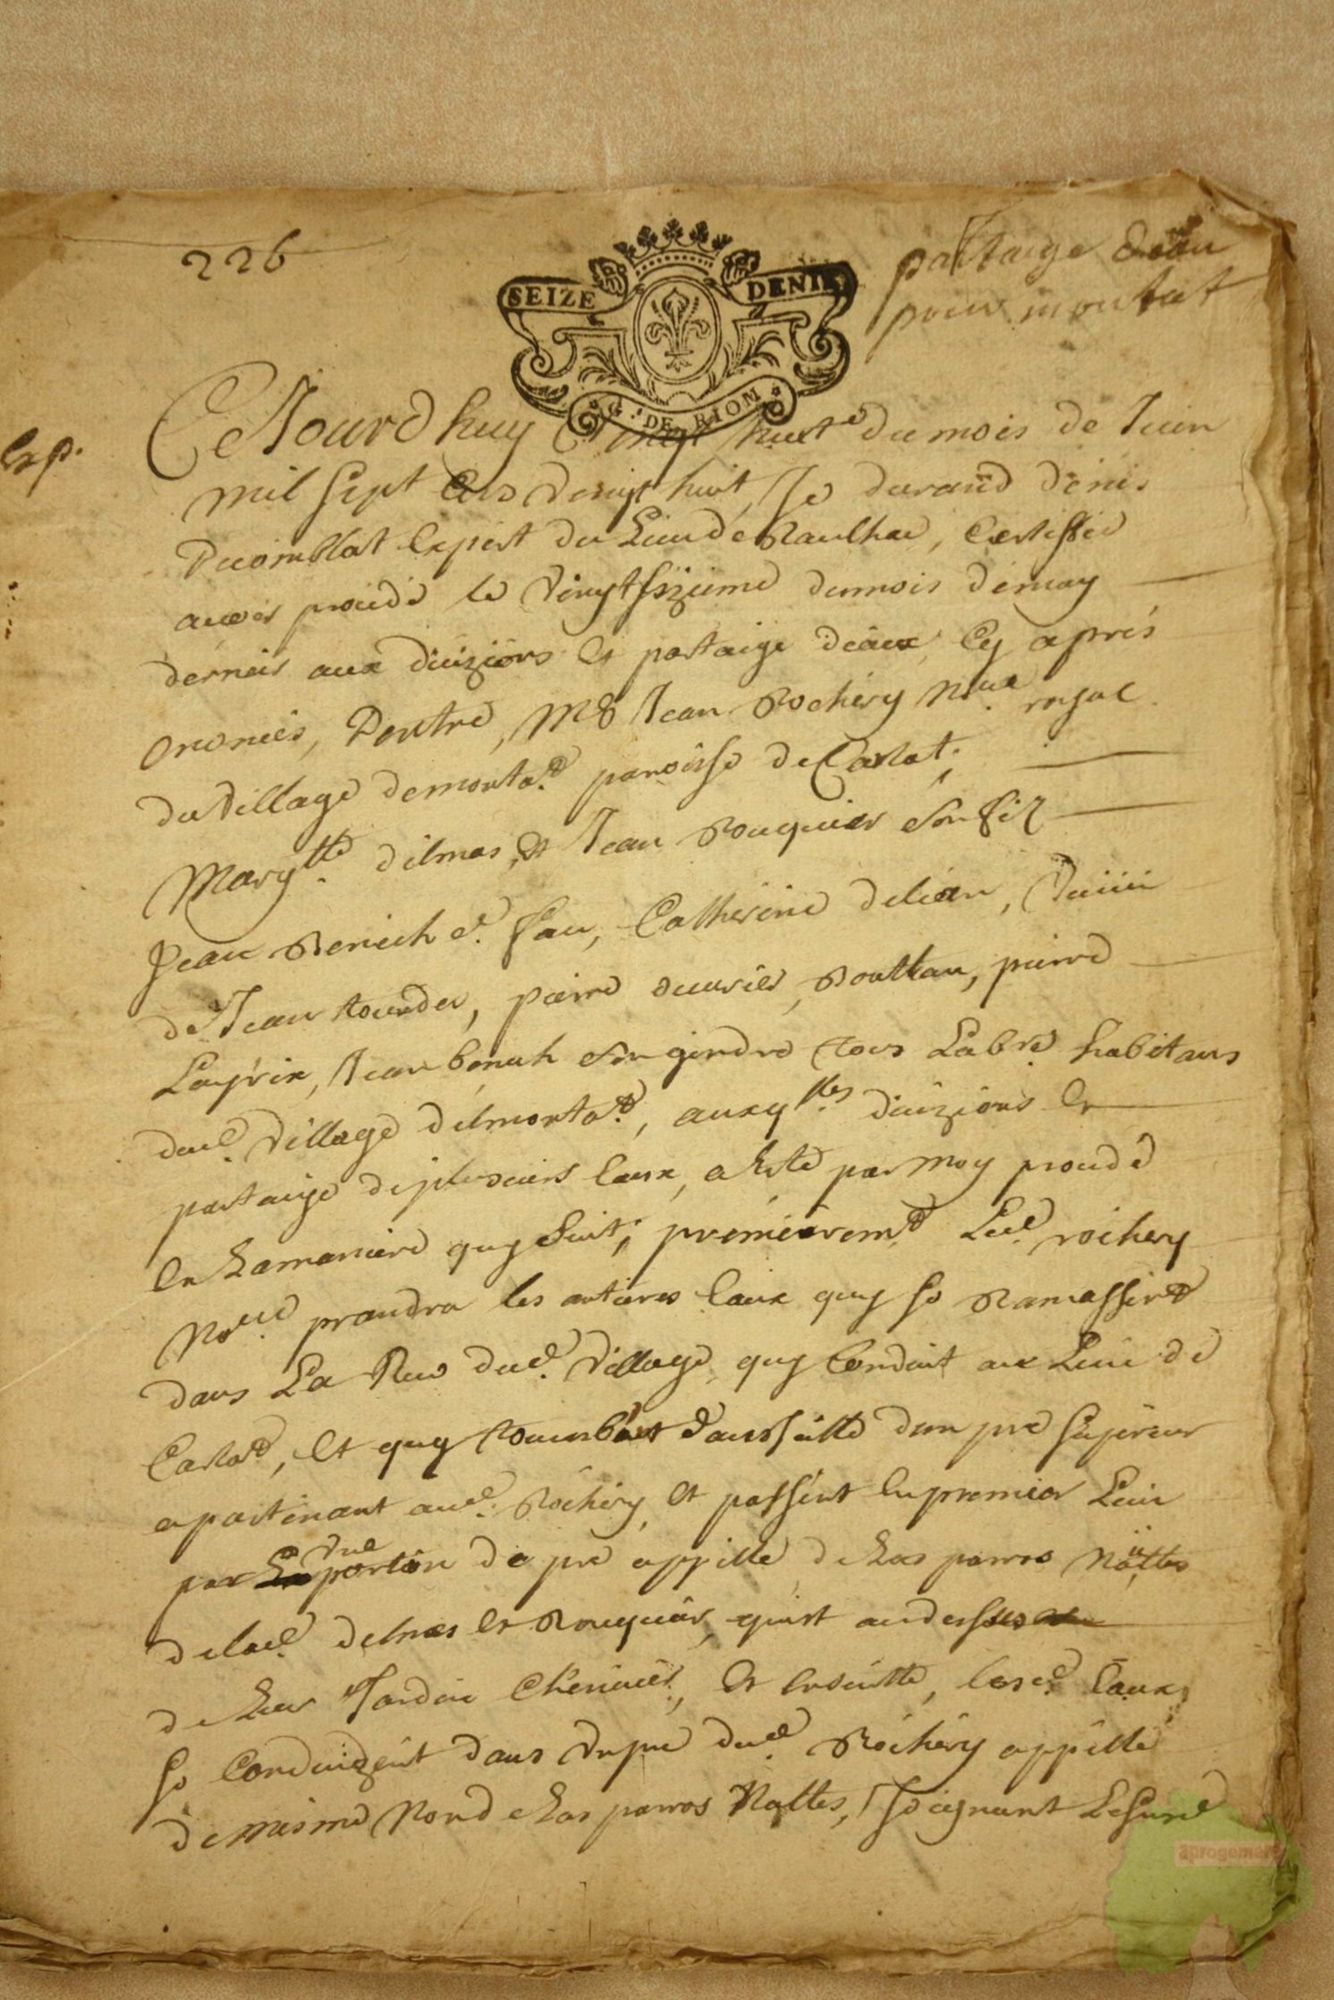 226
partaige deau
pour montat
SEIZE DENIE
G.^t DE RIOM
Exp.
Ce Jourdhuy vingt huict^e du mois de Juin
mil sept cens vingt huit, Je durand denis
expert du Lieu de Raulhac, Certiffie
avoir procedé le vingt sizieme du mois de may
dernier aux divizions et partaige deaux, Cy aprés
Entre, M^e Jean Rochery No^re royal
du village de monta^t paroisse de Carlat,
Marg^tte delmas, et Jean Rouquier son filz
Jean Beneich d^t fau, Catherine , veuve
de Jean tourde, pierre , pierre
Layrix, Jean benech son gendre tous Lab^rs habitans
dud^t village de monta^t, auxq^lles divizions et
partaige de plusieurs Eaux, a esté par moy procedé
En La maniere quy suit, premierem^t Led^t rochery
No^re prandra les antieres Eaux quy se Ramassent
dans La Rue dud^t village, quy Conduit au Lieu de
Carlat, Et quy tombent dans d'un pré superieur
apartenant aud^t Rochery, et passent En premier Lieu
par La une portion de pré appellé, de Las parros Naltes
de lad^e delmas et Rouquier, quist au dessus
de Leur Jardin Cheneviés, et Ensuitte, lesd^s Eaux
se Conduizent dans un pré dud^t Rochery appellé
de mesme Nom de Las parros Naltes,